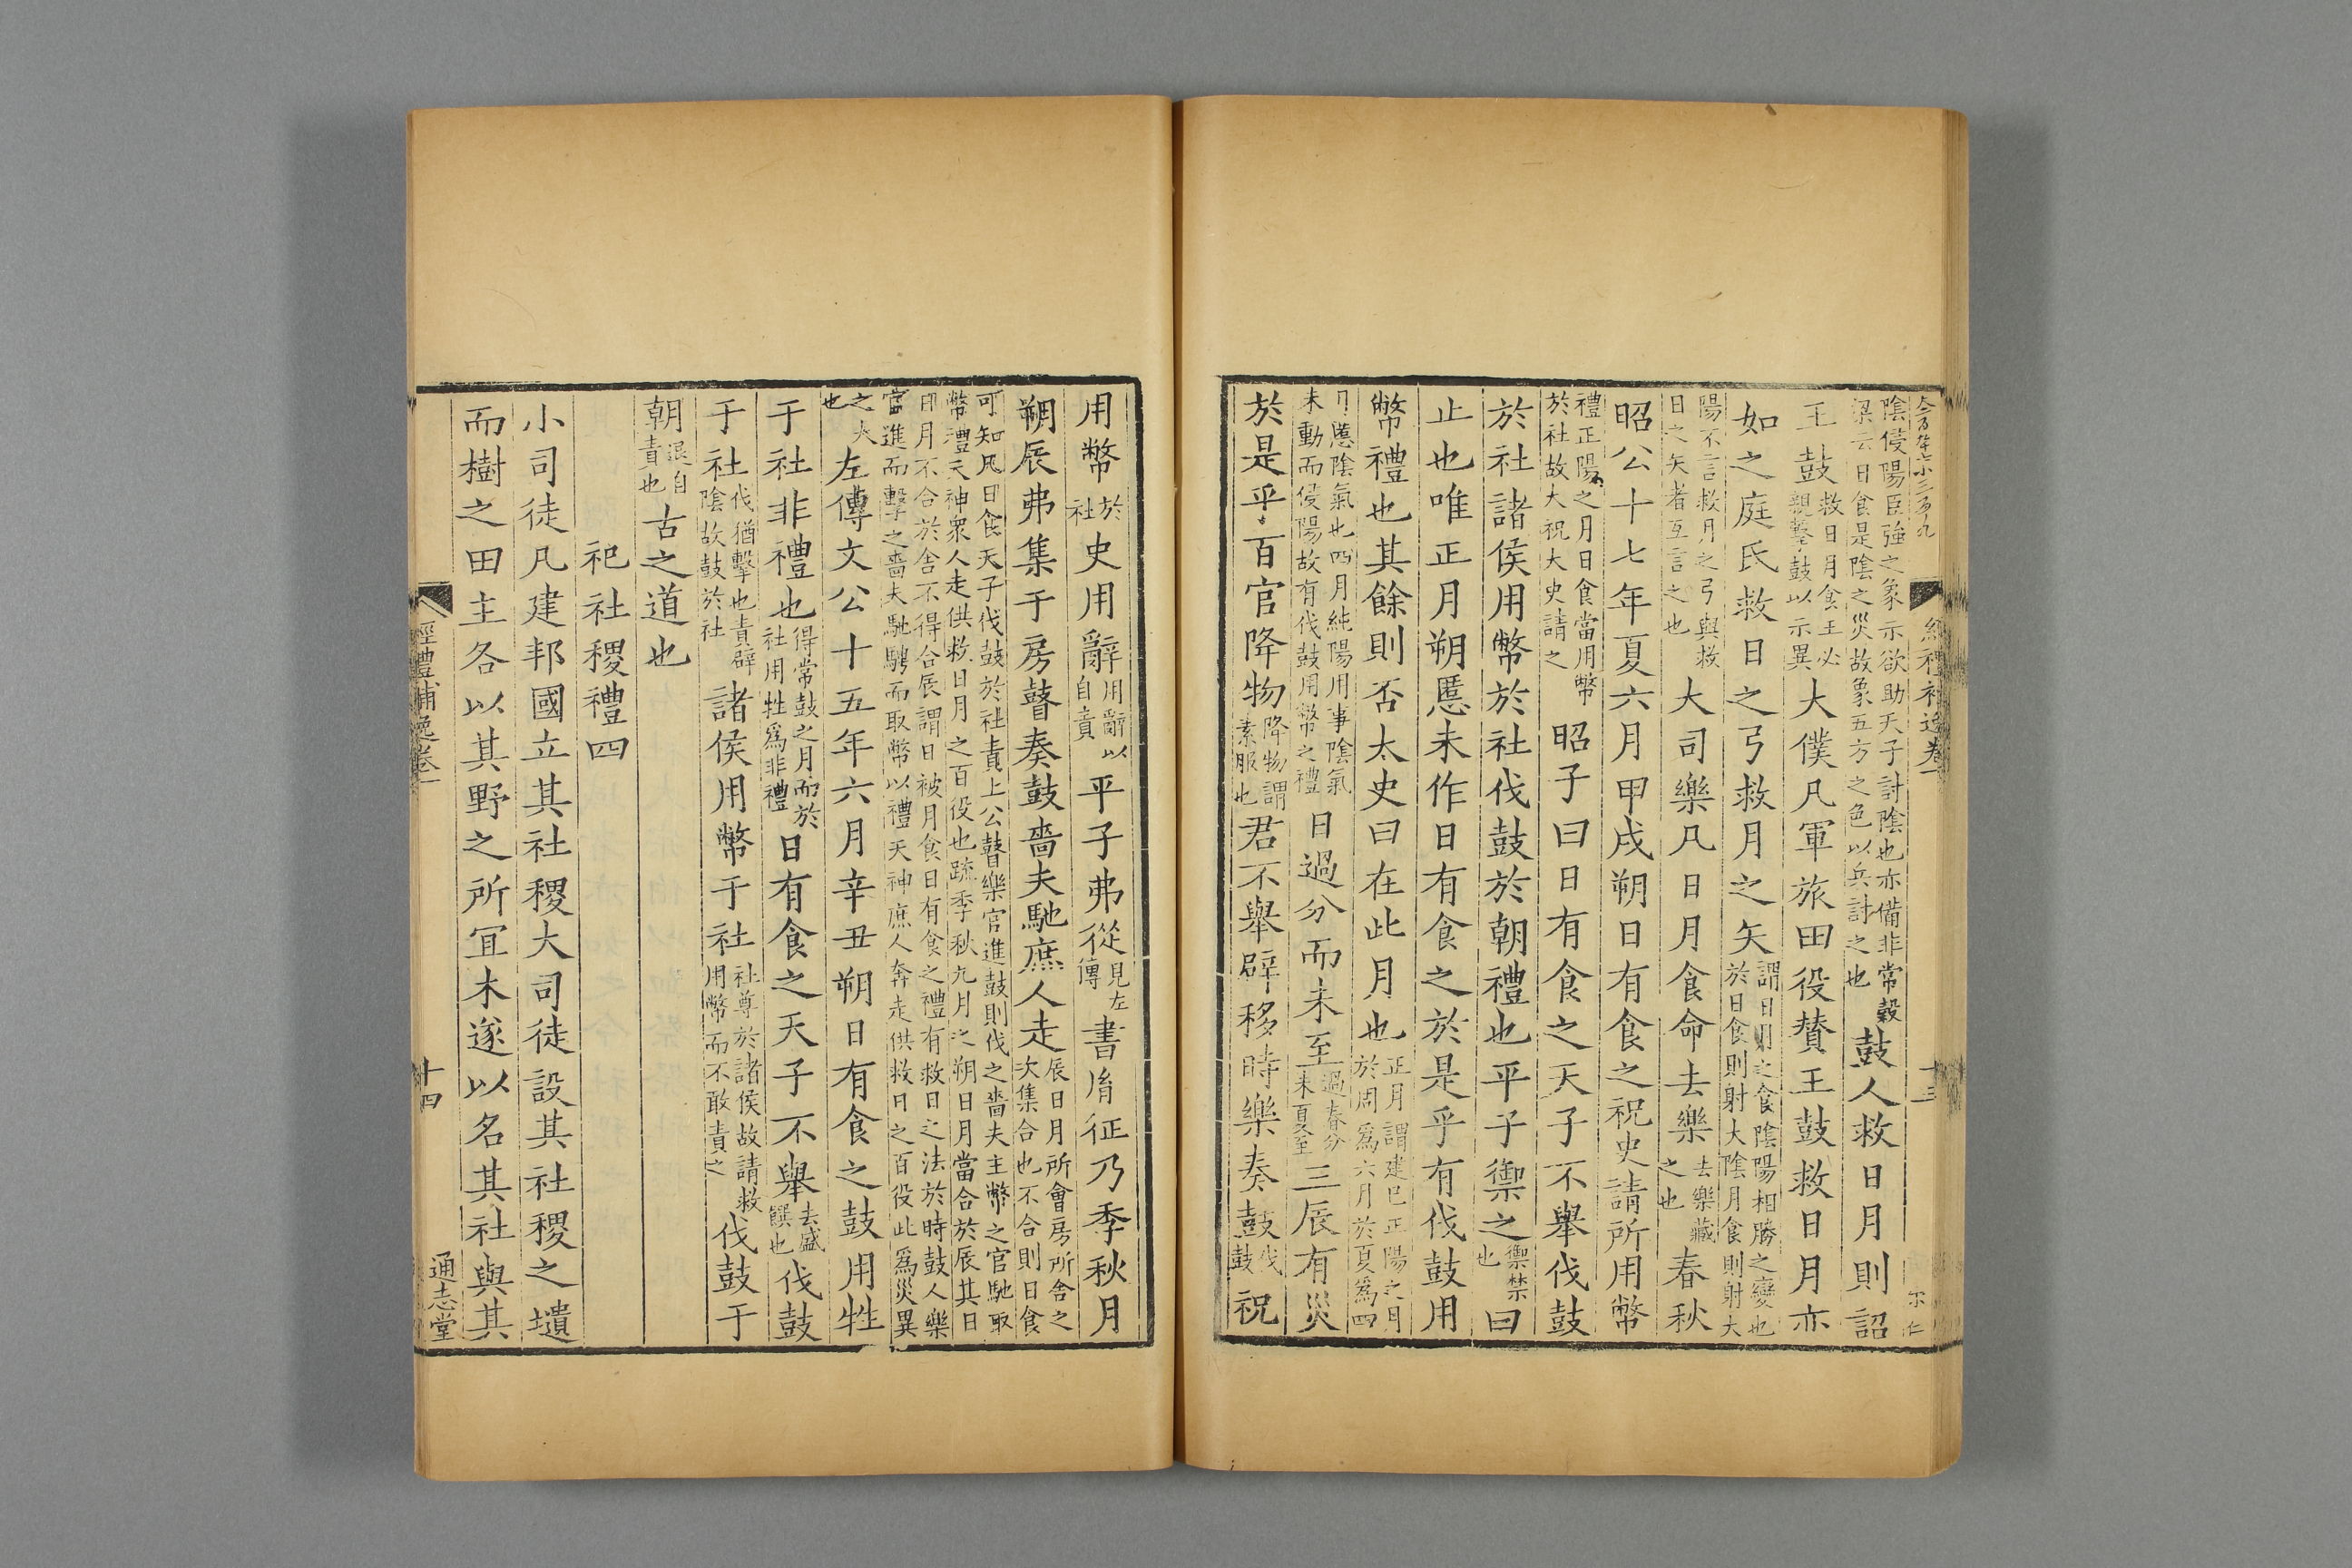 經禮補逸卷一
十三
陰侵陽臣強之象示欲助天子討陰也亦備非常穀梁云日食是陰之災故象五方之色以兵討之也鼓人救日月則詔
王鼓救日月食王必親擊鼓以示異大僕凡軍旅田役贊王鼓救日月亦
如之庭氏救日之弓救月之矢謂日月之食陰陽相勝之變也於日食則射大陰月食則射大
陽不言救月之弓與救日之矢者互言之也大司樂凡日月食命去樂去樂藏之也春秋
昭公十七年夏六月甲戌朔日有食之祝史請所用幣
禮正陽之月日食當用幣於社故大祝大史請之昭子曰日有食之天子不舉伐鼓
於社諸侯用幣於社伐鼓於朝禮也平子禦之禦禁也曰
止也唯正月朔慝未作日有食之於是乎有伐鼓用
幣禮也其餘則否太史曰在此月也正月謂建巳正陽之月於周爲六月於夏爲四
月慝陰氣也四月純陽用事陰氣未動而侵陽故有伐鼓用幣之禮日過分而未至過春分未夏至三辰有災
於是乎百官降物降物謂素服也君不舉辟移時樂奏鼓伐鼓祝
用幣於社史用辭用辭以自責平子弗從見左傳書胤征乃季秋月
朔辰弗集于房瞽奏鼓嗇夫馳庶人走辰日月所會房所舍之次集合也不合則日食
可知凡日食天子伐鼓於社責上公瞽樂官進鼓則伐之嗇夫主幣之官馳取幣禮天神衆人走供救日月之百役也疏季秋九月之朔日月當合於辰其日
日月不合於舍不得合辰謂日被月食日有食之禮有救日之法於時鼓人樂官進而擊之嗇夫馳騁而取幣以禮天神庶人奔走供救日之百役此爲災異
之大也左傳文公十五年六月辛丑朔日有食之鼓用牲
于社非禮也得常鼓之月而於社用牲爲非禮日有食之天子不舉去盛饌也伐鼓
于社伐猶擊也責辟陰故鼓於社諸侯用幣于社社尊於諸侯故請救用幣而不敢責之伐鼓于
朝退自責也古之道也
祀社稷禮四
小司徒凡建邦國立其社稷大司徒設其社稷之壝
而樹之田主各以其野之所宜木遂以名其社與其
經禮補逸卷一
十四
通志堂